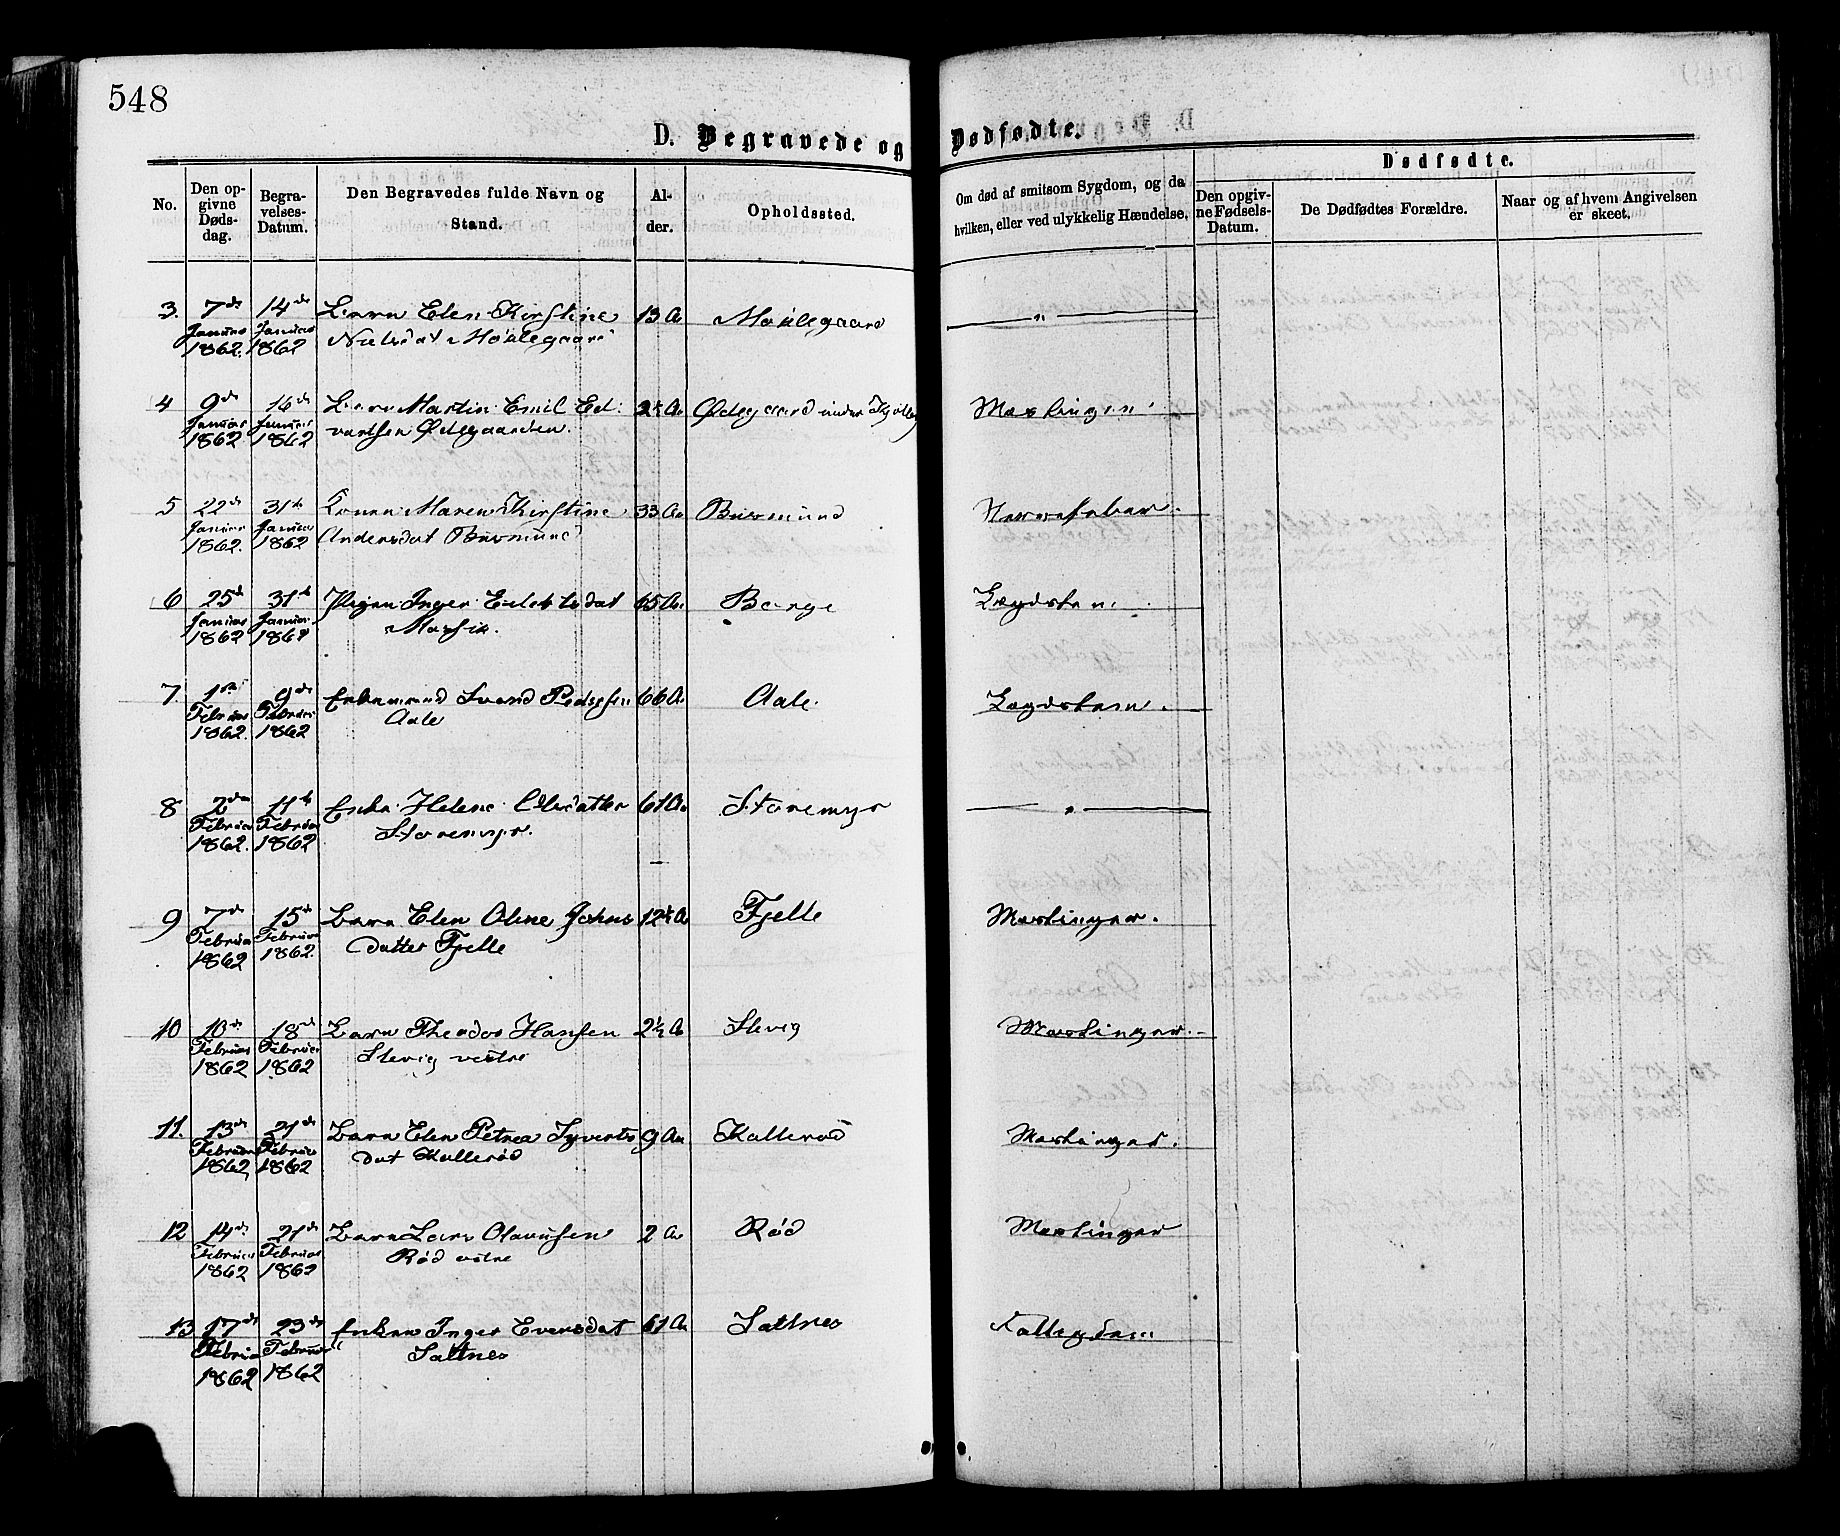 548
D. Begravede og Dødfødte.
No.
Den opgivne Dødsdag.
Begravelses-Datum.
Den Begravedes fulde Navn og Stand.
Alder.
Opholdssted.
Om død af smitsom Sygdom, og da hvilken, eller ved ulykkelig Hændelse.
Dødfødte.
Den opgivne Fødsels-Datum.
De Dødfødtes Forældre.
Naar og af hvem Angivelsen er skeet.
3. 7de 14de Barn Elen Kirstine 13 A
Januar Januar Nielsdat
1862. 1862
4 9de 16de Barn Martin Emil Ed- Ødegaard under
Januar Januar vartsen Ødegaarden.
1862 1862
5 22de 31te Konen Maren Kirstine 33 A
Januar Januar Andersdat
1862. 1862
6 25de 31te Pigen Inger 65 A. Borge
Januar Januar
1862 1862
7. 1ste 9de Enkemand Svend 66 A Aale.
Februar Februar Aale
1862. 1862
8 2den 11te Enke Helene Olsdatter 61 A Storemyr
Februar Februar Storemyr.
1862. 1862
9 7de 15de Barn Elen Oline Johns 12½ A Fjelle Mæslinger.
Februar Februar datter Fjelle
1862 1862.
10 10de 18de Barn Theodor Hansen 2½ A Slevig Mæslinger.
Februar Februar Slevig vestre
1862 1862
11. 13de 21de Barn Elen Petrea Syverts 9 A Kallerød Mæslinger.
Februar Februar dat Kallerød
1862 1862
12 14de 21de Barn Lars Olavusen 2 A Rød Mæslinger
Februar Februar Rød vstre
1862 1862
13 17de 23de Enken Inger Eversdat 61 A Saltnes
Februar Februar Saltnes
1862 1862